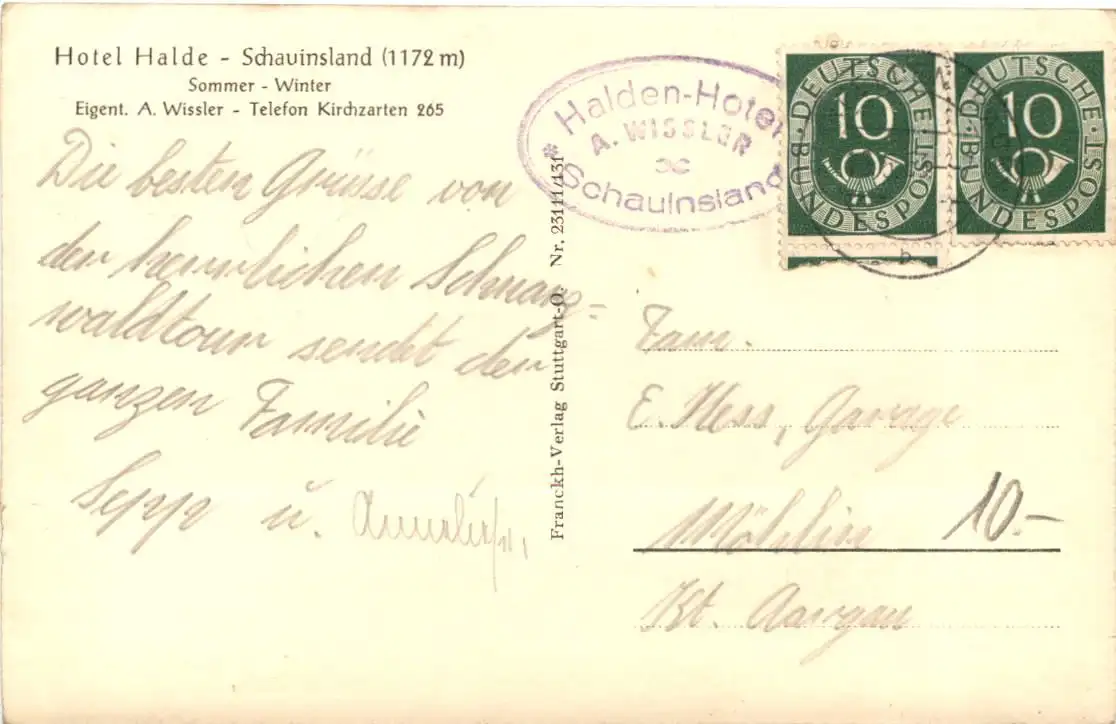 Hotel Halde - Schauinsland (1172 m)
Sommer - Winter
Eigent. A. Wissler - Telefon Kirchzarten 265
Die besten Grüsse von
der herrlichen Schwarz=
waldtour sendet der
ganzen Familie
Sepp u. Anneliese,
Franckh-Verlag Stuttgart-O. Nr. 23111/131
* Halden-Hotel
A. WISSLER
Schauinsland
10
DEUTSCHE BUNDESPOST
10
DEUTSCHE BUNDESPOST
Fam.
E. Hess, Garage
Möhlin
10.-
Kt. Aargau